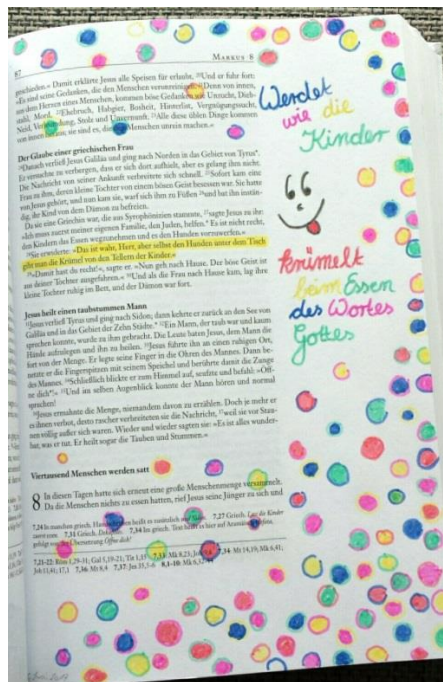 67
MARKUS 6
geschieden.« Damit erklärte Jesus alle Speisen für erlaubt, ²⁰Und er fuhr fort:
»Es sind seine Gedanken, die den Menschen verunreinigen. ²¹Denn von innen,
aus dem Herzen eines Menschen, kommen böse Gedanken wie Unzucht, Dieb-
stahl, Mord, ²²Ehebruch, Habgier, Bosheit, Hinterlist, Vergnügungssucht,
Neid, Verleumdung, Stolz und Unvernunft. ²³Alle diese üblen Dinge kommen
von innen heraus; sie sind es, die den Menschen unrein machen.«
Der Glaube einer griechischen Frau
²⁴Danach verließ Jesus Galiläa und ging nach Norden in das Gebiet von Tyrus*.
Er versuchte zu verbergen, dass er sich dort aufhielt, aber es gelang ihm nicht.
Die Nachricht von seiner Ankunft verbreitete sich schnell. ²⁵Sofort kam eine
Frau zu ihm, deren kleine Tochter von einem bösen Geist besessen war. Sie hatte
von Jesus gehört, und nun kam sie, warf sich ihm zu Füßen ²⁶und bat ihn instän-
dig, ihr Kind von dem Dämon zu befreien.
Da sie eine Griechin war, die aus Syrophönizien stammte, ²⁷sagte Jesus zu ihr:
»Ich muss zuerst meiner eigenen Familie, den Juden, helfen.* Es ist nicht recht,
den Kindern das Essen wegzunehmen und es den Hunden vorzuwerfen.«
²⁸Sie erwiderte: »Das ist wahr, Herr, aber selbst den Hunden unter dem Tisch
gibt man die Krümel von den Tellern der Kinder.«
²⁹»Damit hast du recht!«, sagte er. »Nun geh nach Hause. Der böse Geist ist
aus deiner Tochter ausgefahren.« ³⁰Und als die Frau nach Hause kam, lag ihre
kleine Tochter ruhig im Bett, und der Dämon war fort.
Jesus heilt einen taubstummen Mann
³¹Jesus verließ Tyrus und ging nach Sidon; dann kehrte er zurück an den See von
Galiläa und in das Gebiet der Zehn Städte.* ³²Ein Mann, der taub war und kaum
sprechen konnte, wurde zu ihm gebracht. Die Leute baten Jesus, dem Mann die
Hände aufzulegen und ihn zu heilen. ³³Jesus führte ihn an einen ruhigen Ort,
fort von der Menge. Er legte seine Finger in die Ohren des Mannes. Dann be-
netzte er die Fingerspitzen mit seinem Speichel und berührte damit die Zunge
des Mannes. ³⁴Schließlich blickte er zum Himmel auf, seufzte und befahl: »Öff-
ne dich*!« ³⁵Und im selben Augenblick konnte der Mann hören und normal
sprechen!
³⁶Jesus ermahnte die Menge, niemandem davon zu erzählen. Doch je mehr er
es ihnen verbot, desto rascher verbreiteten sie die Nachricht, ³⁷weil sie vor Stau-
nen völlig außer sich waren. Wieder und wieder sagten sie: »Es ist alles wunder-
bar, was er tut. Er heilt sogar die Tauben und Stummen.«
Viertausend Menschen werden satt
8 In diesen Tagen hatte sich erneut eine große Menschenmenge versammelt.
Da die Menschen nichts zu essen hatten, rief Jesus seine Jünger zu sich und
7,24 In manchen griech. Handschriften heißt es zusätzlich und Sidon. 7,27 Griech. Lass die Kinder
zuerst 7,31 Griech. Dekapolis. 7,34 Im griech. Text heißt es hier auf Aramäisch
gefolgt Übersetzung Öffne dich!
7,21-22: Röm 1,29-31; Gal 5,19-21; Tit 1,15 7,33: Mk 8,23; 7,34: Mt 14,19; Mk 6,41;
Joh 11,41; 17,1 7,36: Mt 8,4 7,37: Jes 35,5-6 8,1-10: Mk 6,32-44
Werdet
wie die
Kinder
krümelt
beim Essen
des Wortes
Gottes